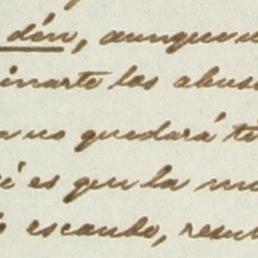 dén, aunque
inarte los abus
no quedará te
es que la m
escando, resu